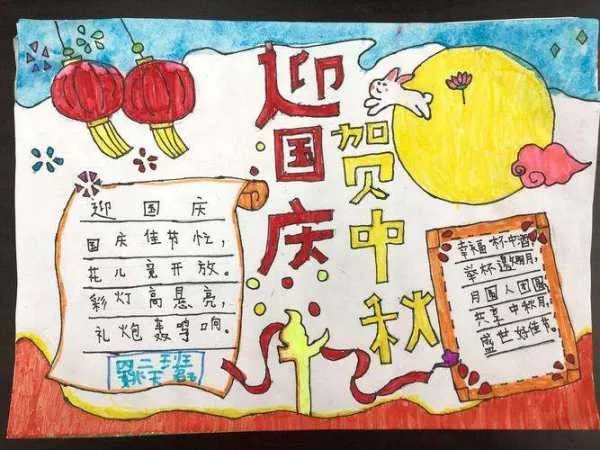 迎国庆
贺中秋
迎国庆
国庆佳节忙，
花儿竞开放。
彩灯高悬亮，
礼炮轰鸣响。
四二班
幸福杯中酒
举杯邀明月，
月圆人团圆
共享中秋月，
盛世好佳节。